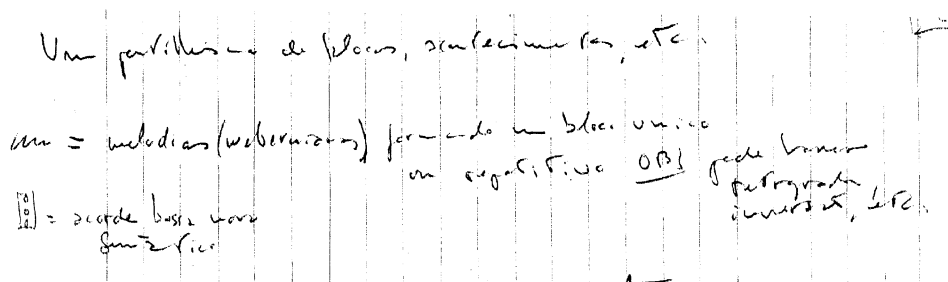 Um pontilhismo de blocos, acontecimentos, etc.
= melodias (webernianas) formando um bloco único
ou repetitivo OBS pode haver
retrograda
inversão, etc.
= acorde bossa nova